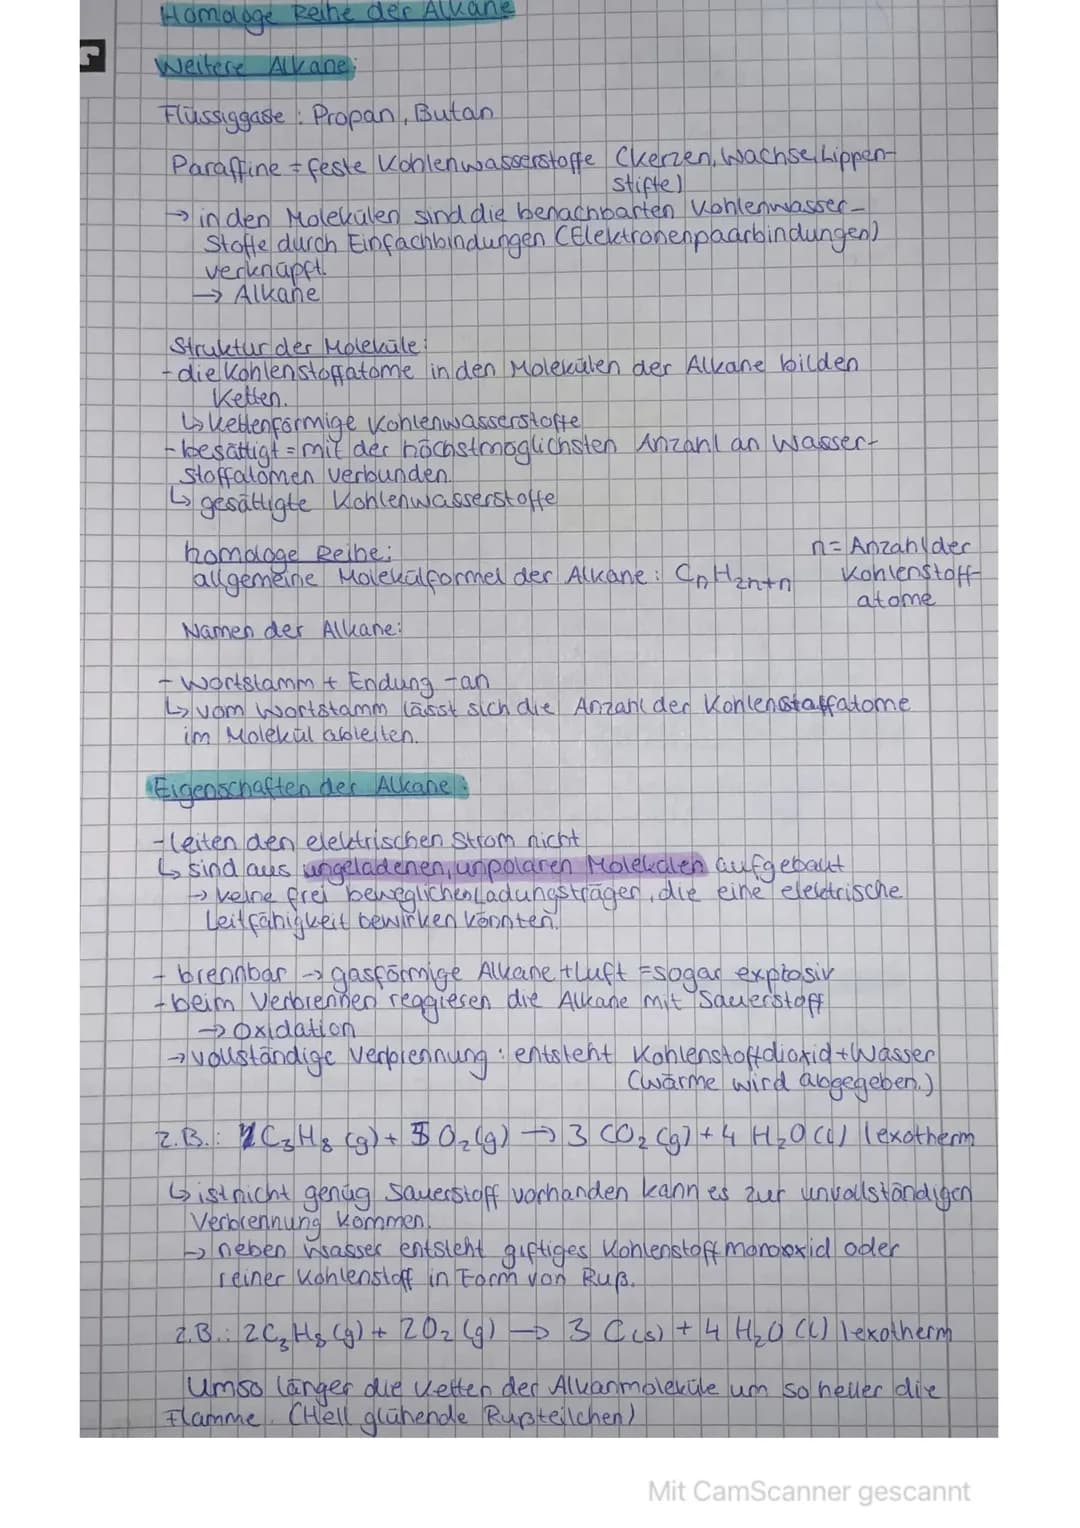 Homologe Reihe der Alkane
Weitere Alkane:
Flüssiggase: Propan, Butan
Paraffine = feste Kohlenwasserstoffe (Kerzen, Wachse, Lippen-
stifte)
→ in den Molekülen sind die benachbarten Kohlenwasser-
stoffe durch Einfachbindungen (Elektronenpaarbindungen)
verknüpft.
→ Alkane
Struktur der Moleküle:
- die Kohlenstoffatome in den Molekülen der Alkane bilden
Ketten.
↳ kettenförmige Kohlenwasserstoffe
- besättigt = mit der höchstmöglichsten Anzahl an Wasser-
stoffatomen verbunden.
↳ gesättigte Kohlenwasserstoffe
homologe Reihe:
allgemeine Molekülformel der Alkane: CnH2n+n
n = Anzahl der
Kohlenstoff-
atome
Namen der Alkane:
- Wortstamm + Endung -an
↳ vom Wortstamm lässt sich die Anzahl der Kohlenstoffatome
im Molekül ableiten.
Eigenschaften der Alkane:
- leiten den elektrischen Strom nicht
↳ sind aus ungeladenen, unpolaren Molekülen aufgebaut
→ keine frei beweglichen Ladungsträger, die eine elektrische
Leitfähigkeit bewirken könnten.
- brennbar → gasförmige Alkane + Luft = sogar explosiv
- beim Verbrennen reagieren die Alkane mit Sauerstoff
→ Oxidation
→ vollständige Verbrennung: entsteht Kohlenstoffdioxid + Wasser
(Wärme wird abgegeben.)
z.B.: 1 C3H8 (g) + 5 O2 (g) → 3 CO2 (g) + 4 H2O (l) | exotherm
↳ ist nicht genüg Sauerstoff vorhanden kann es zur unvollständigen
Verbrennung kommen.
→ neben Wasser entsteht giftiges Kohlenstoffmonooxid oder
reiner Kohlenstoff in Form von Ruß.
z.B.: 2 C3H8 (g) + 2O2 (g) → 3 C (s) + 4 H2O (l) | exotherm
Umso länger die Ketten der Alkanmoleküle um so heller die
Flamme. (Hell glühende Rußteilchen)
Mit CamScanner gescannt